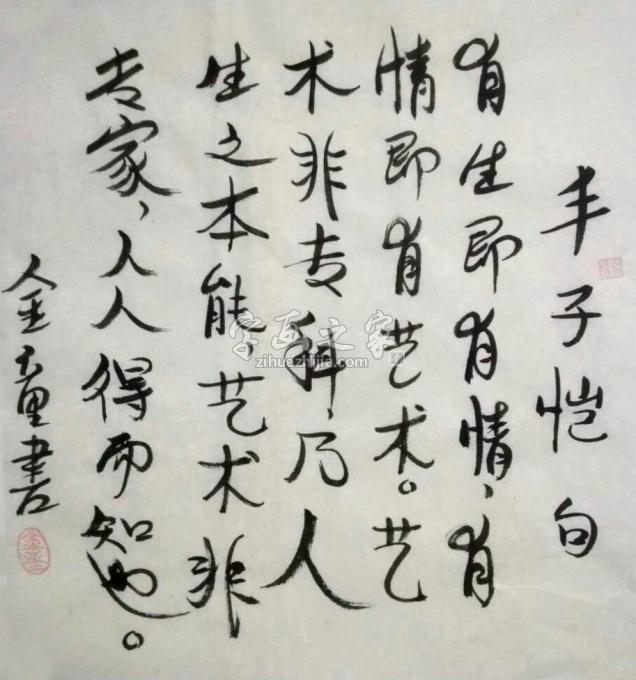 丰子恺句
有生即有情、有
情即有艺术。艺
术非专科，乃人
生之本能，艺术非
专家，人人得而知也。
書
字画之家
zihuazhijia.com